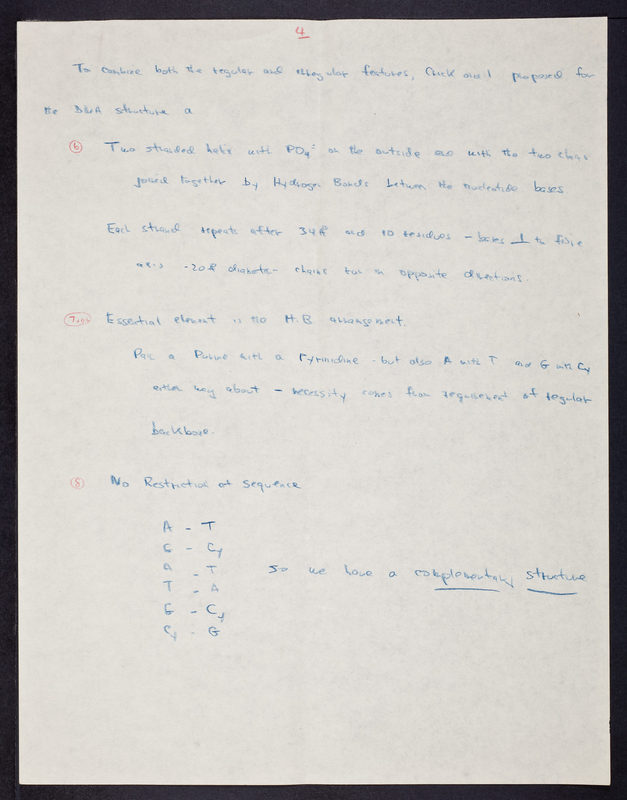 4
To combine both the regular and irregular features, Crick and I proposed for
the DNA structure a
6 Two stranded helix with PO4⁻ on the outside and with the two chains
joined together by Hydrogen Bonds between the nucleotide bases
Each strand repeats after 34Å and 10 residues – bases ⊥ to fibre
axis - 20Å diameter - chains run in opposite directions.
Essential element is the H.B arrangement.
Pair a Purine with a Pyrimidine - but also A with T and G with Cy
either way about – necessity comes from requirement of regular
backbone.
8 No Restriction of sequence
A - T
G - Cy
A - T so we have a complementary structure
T - A
G - Cy
Cy - G